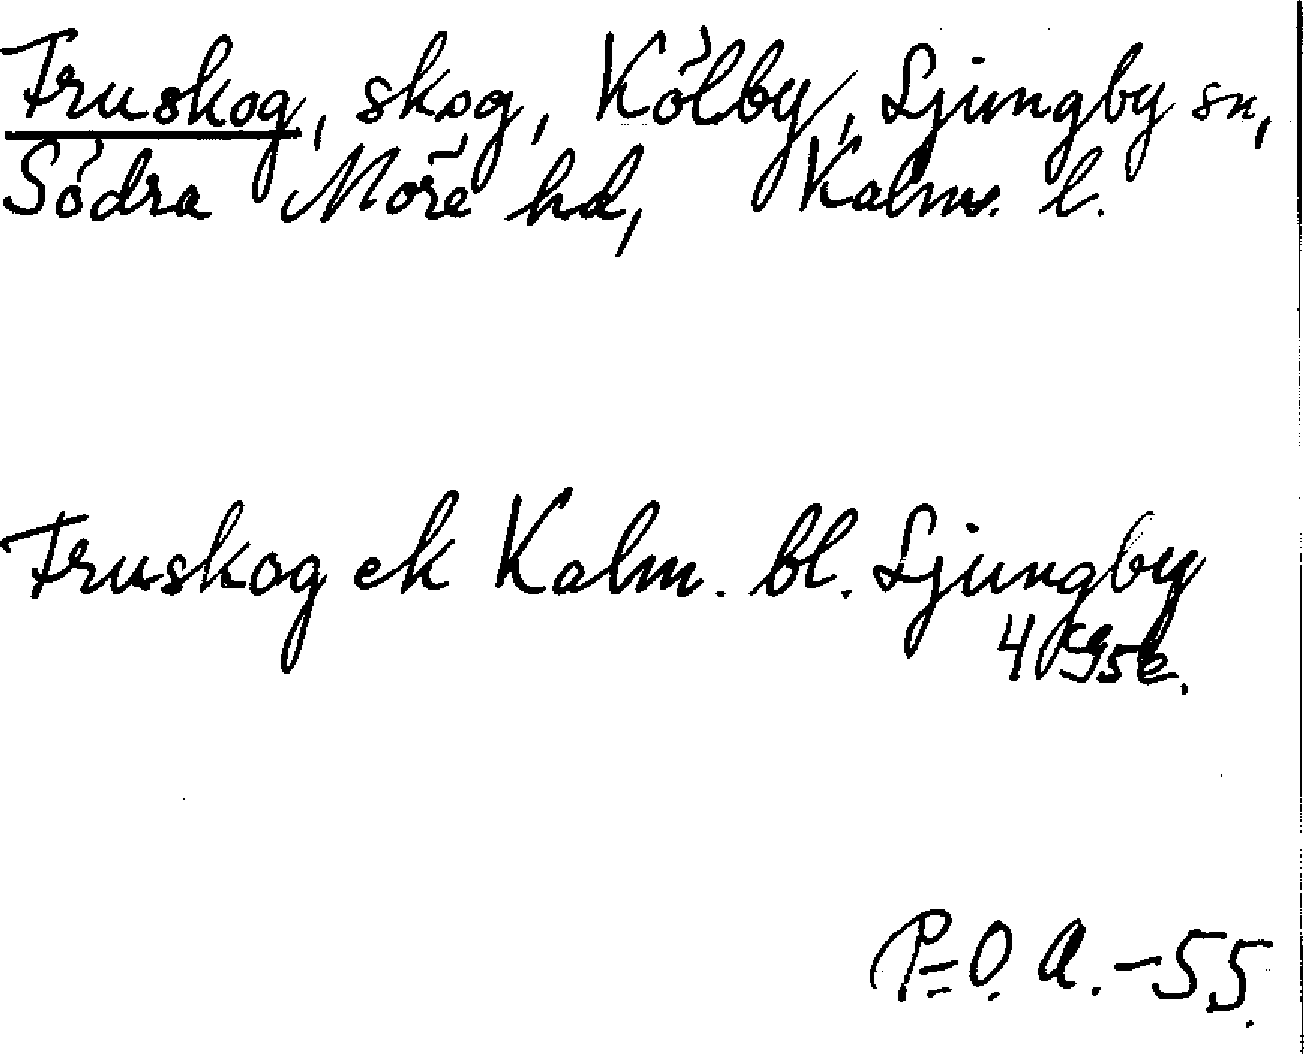 Fruskog, skog, Kölby, Ljungby sn,
Södra Möre hd, Kalm. l.
Fruskog ek Kalm. bl. Ljungby
4 g5e.
P-O. A. -55.